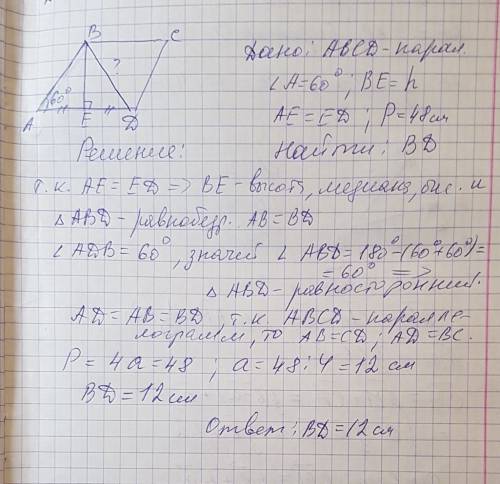 B C
? 60°
A E D
Дано: ABCD - парал.
∠A=60°; BE=h
AE=ED; P=48см
Найти: BD
Решение:
т.к. AE=ED => BE - высота, медиана, бис. и
△ABD - равнобедр. AB=BD
∠ADB=60°, значит ∠ABD=180°-(60°+60°)=
=60° =>
△ABD - равносторонний.
AD=AB=BD, т.к. ABCD - паралле-
лограмм, то AB=CD; AD=BC.
P=4a=48; a=48:4=12 см
BD=12см
Ответ: BD=12см